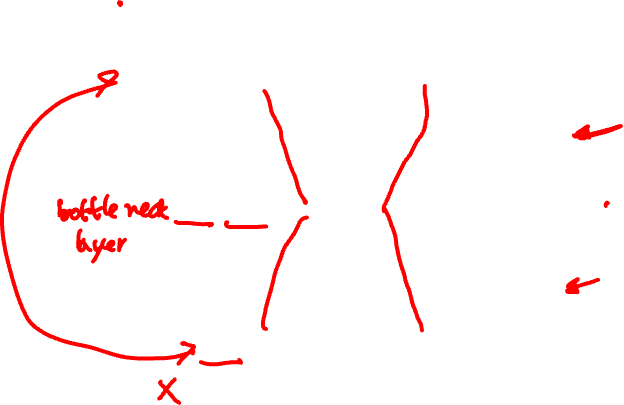 bottle neck
layer
X